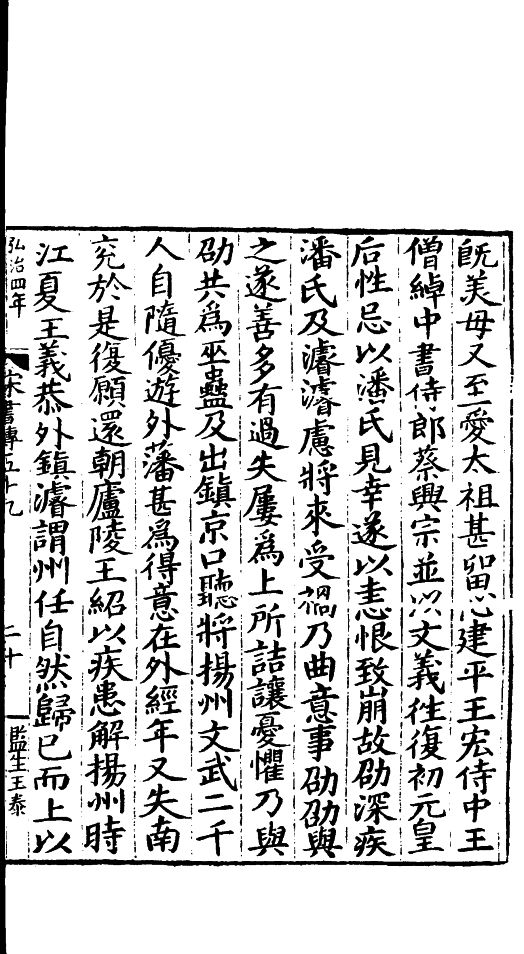 旣美母又至愛太祖甚留心建平王宏侍中王
僧綽中書侍郎蔡興宗並以文義往復初元皇
后性忌以潘氏見幸遂以恚恨致崩故劭深疾
潘氏及濬濬慮將來受禍乃曲意事劭劭與
之遂善多有過失屢爲上所詰讓憂懼乃與
劭共爲巫蠱及出鎭京口聽將揚州文武二千
人自隨優遊外藩甚爲得意在外經年又失南
兖於是復願還朝廬陵王紹以疾患解揚州時
江夏王義恭外鎭濬謂州任自然歸已而上以
弘治四年
宋書傳五十九
二十
監生王泰